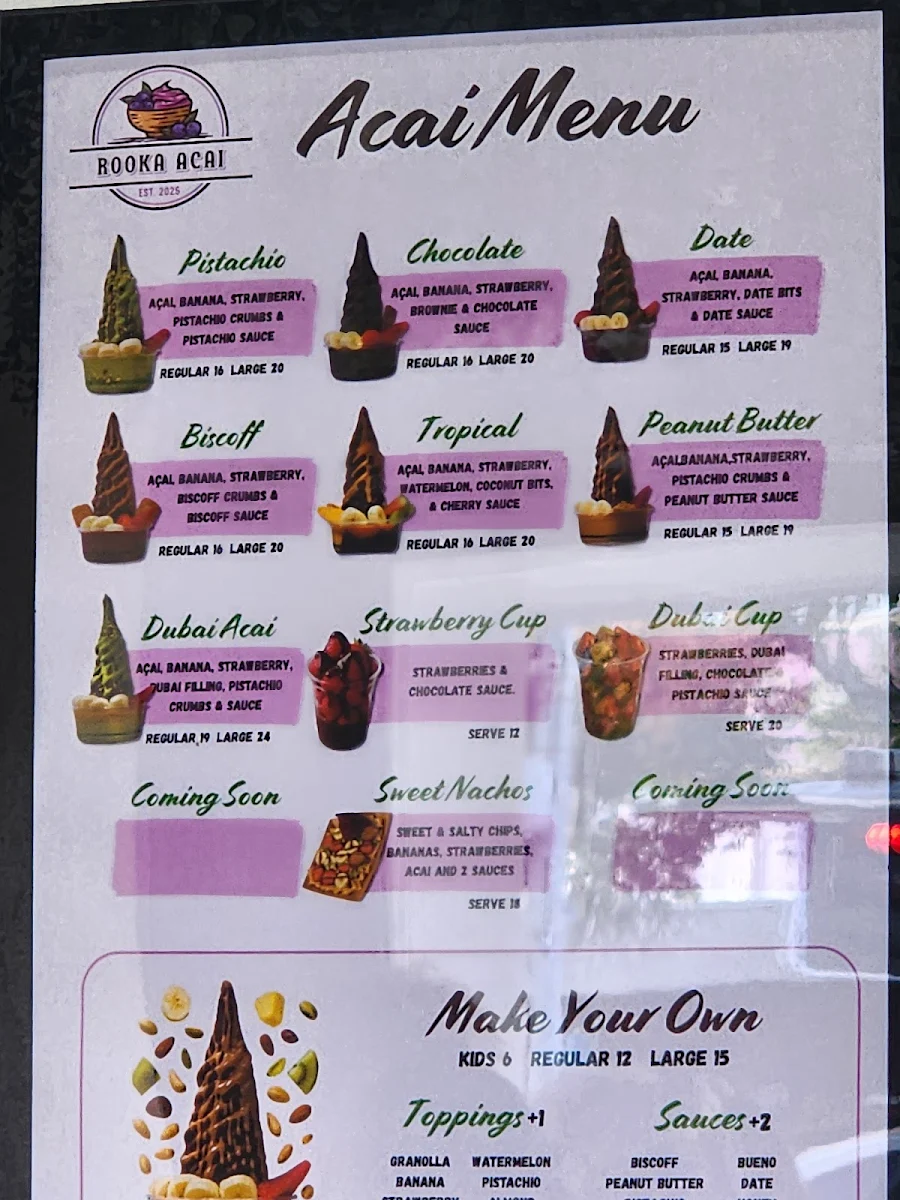 Acai Menu
ROOKA ACAI
EST. 2025
Pistachio
AÇAI, BANANA, STRAWBERRY,
PISTACHIO CRUMBS &
PISTACHIO SAUCE
REGULAR 16 LARGE 20
Chocolate
AÇAI, BANANA, STRAWBERRY,
BROWNIE & CHOCOLATE
SAUCE
REGULAR 16 LARGE 20
Date
AÇAI, BANANA,
STRAWBERRY, DATE BITS
& DATE SAUCE
REGULAR 15 LARGE 19
Biscoff
AÇAI, BANANA, STRAWBERRY,
BISCOFF CRUMBS &
BISCOFF SAUCE
REGULAR 16 LARGE 20
Tropical
AÇAI, BANANA, STRAWBERRY,
WATERMELON, COCONUT BITS,
& CHERRY SAUCE
REGULAR 16 LARGE 20
Peanut Butter
AÇAI,BANANA,STRAWBERRY,
PISTACHIO CRUMBS &
PEANUT BUTTER SAUCE
REGULAR 15 LARGE 19
Dubai Acai
AÇAI, BANANA, STRAWBERRY,
DUBAI FILLING, PISTACHIO
CRUMBS & SAUCE
REGULAR 19 LARGE 24
Strawberry Cup
STRAWBERRIES &
CHOCOLATE SAUCE.
SERVE 12
Dubai Cup
STRAWBERRIES, DUBAI
FILLING, CHOCOLATE &
PISTACHIO SAUCE
SERVE 20
Coming Soon
Sweet Nachos
SWEET & SALTY CHIPS,
BANANAS, STRAWBERRIES,
ACAI AND 2 SAUCES
SERVE 18
Coming Soon
Make Your Own
KIDS 6 REGULAR 12 LARGE 15
Toppings +1
GRANOLLA WATERMELON
BANANA PISTACHIO
Sauces +2
BISCOFF BUENO
PEANUT BUTTER DATE